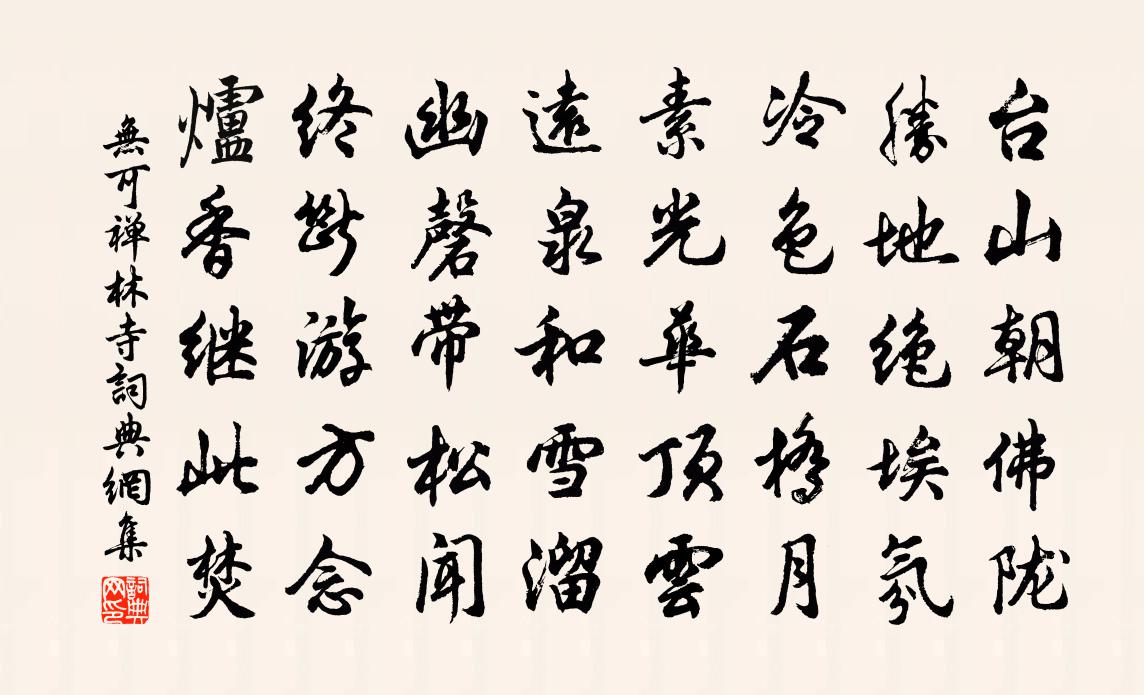 台山朝佛陇
勝地绝埃氛
冷色石橋月
素光華顶雲
遠泉和雪溜
幽磬带松闻
终斷游方念
爐香继此焚
無可禅林寺詞典網集
詞典
网印